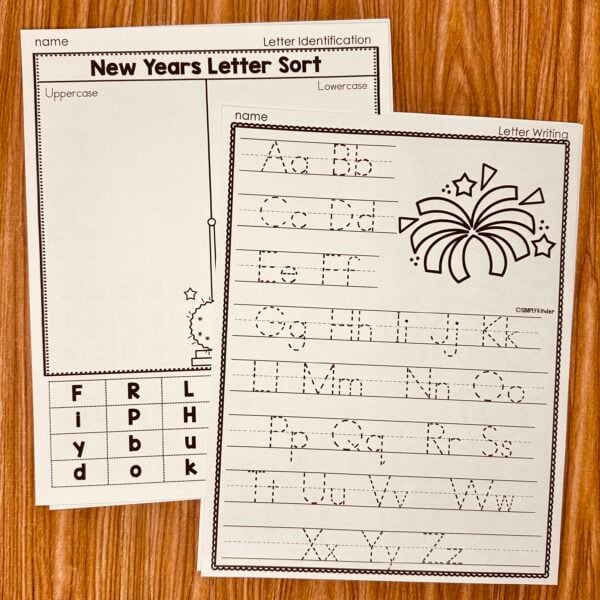 name Letter Identification
New Years Letter Sort
Uppercase Lowercase
F R L
i P H
y b u
d o k
name Letter Writing
Aa Bb
Cc Dd
Ee Ff
©SIMPLYkinder
Gg Hh Ii Jj Kk
Ll Mm Nn Oo
Pp Qq Rr Ss
Tt Uu Vv Ww
Xx Yy Zz